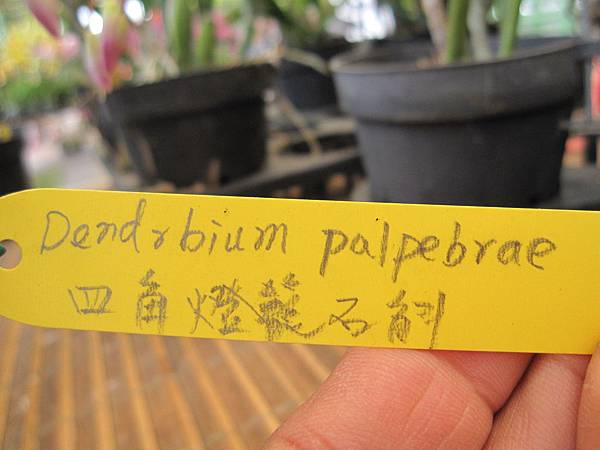 Dendrbium palpebrae
四角燈籠石斛